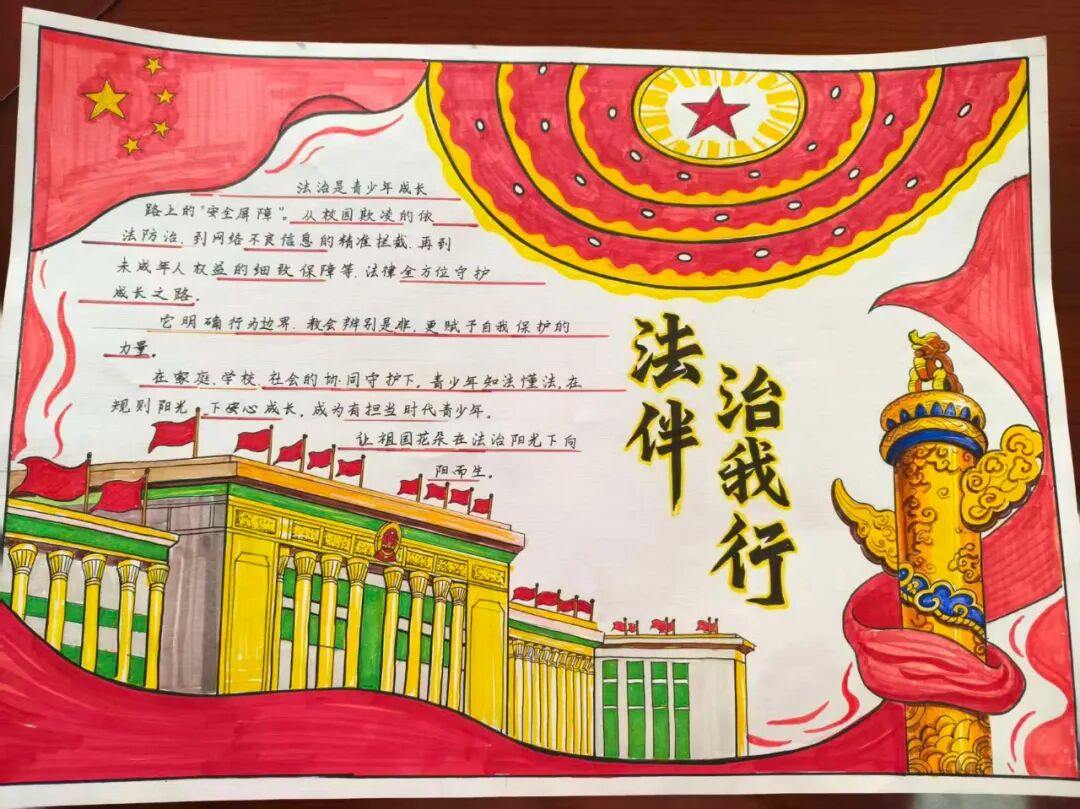 法治是青少年成长
路上的“安全屏障”。从校园欺凌的依
法防治、到网络不良信息的精准拦截、再到
未成年人权益的细致保障等、法律全方位守护
成长之路。
它明确行为边界、教会辨别是非，更赋予自我保护的
力量。
在家庭、学校、社会的协同守护下，青少年知法懂法、在
规则阳光下安心成长，成为有担当时代青少年。
让祖国花朵在法治阳光下向
阳而生。
法治
伴我行